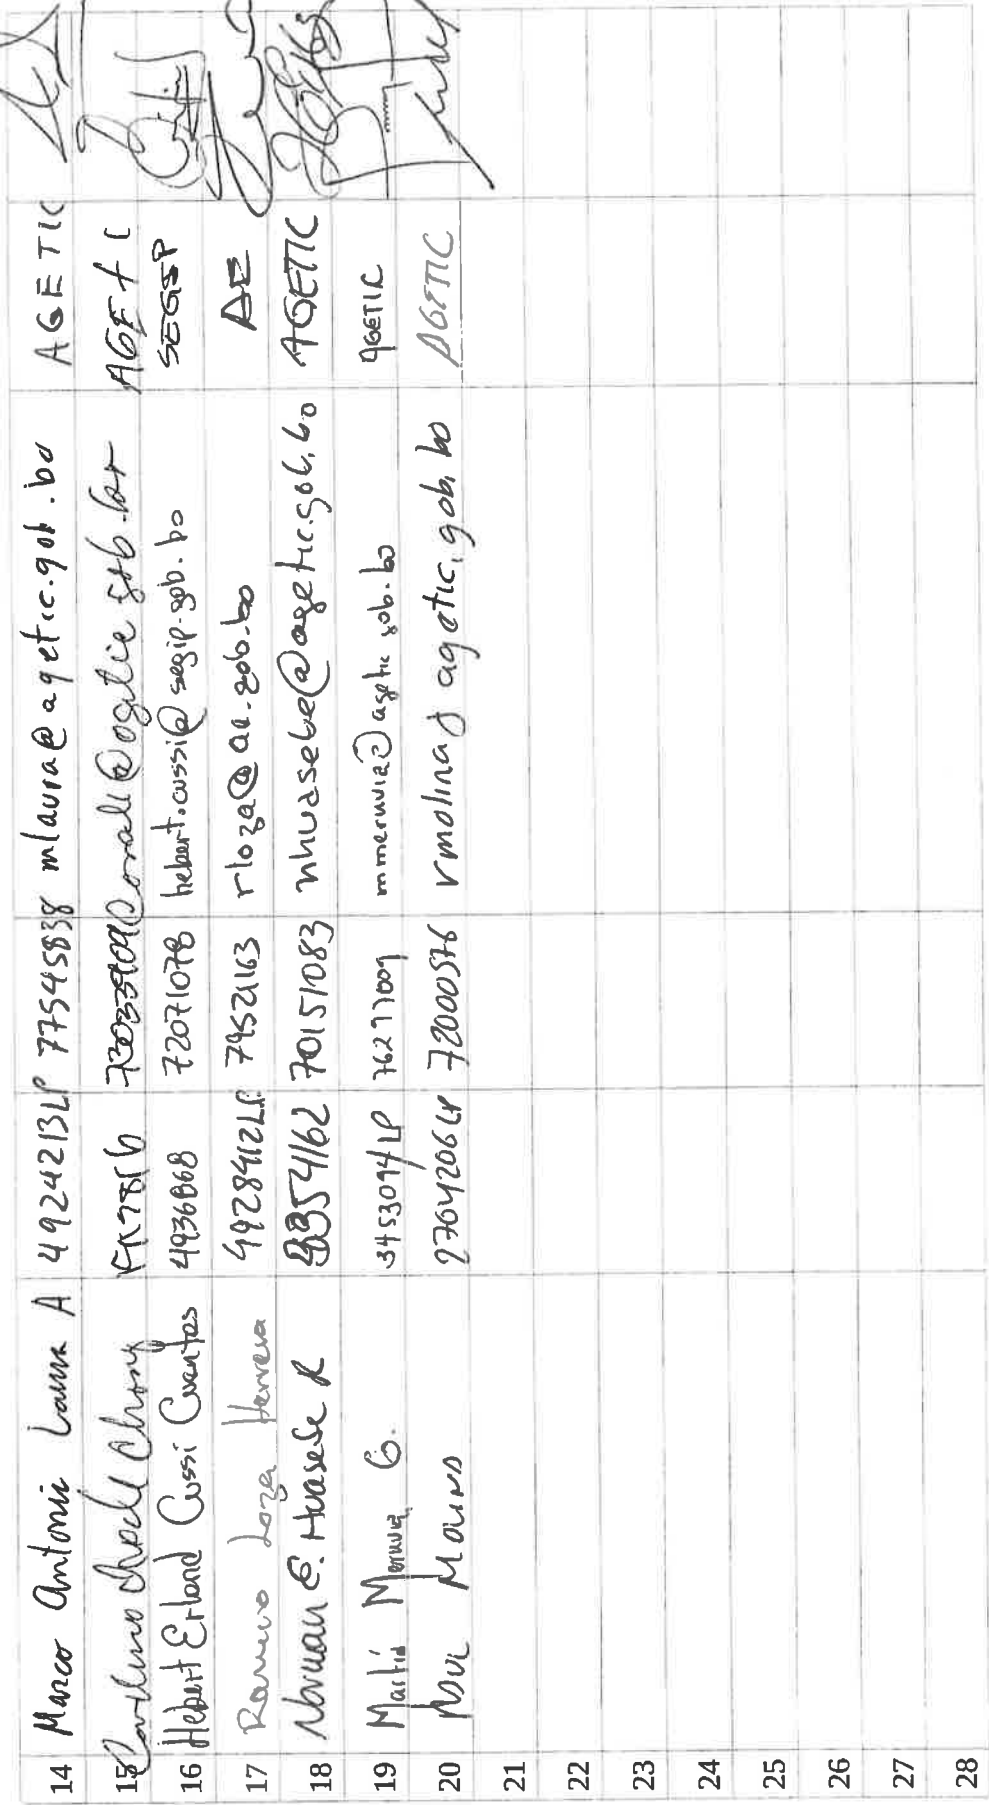 14 Marco Antonio Laura A 4924213LP 77545838 mlaura@agetic.gob.bo AGETIC
15 AGETIC
16 Hebert Erland Cussi Cuentas 4936868 72071078 hebert.cussi@segip.gob.bo SEGIP
17 Ramiro Loza Herrera 4928912LP 79521163 rloza@ae.gob.bo AE
18 Norman E. Huasebe R 3354162 70151083 nhuasebe@agetic.gob.bo AGETIC
19 Martín Meruvia G. 3453094LP 76297009 mmeruvia@agetic.gob.bo AGETIC
20 Molina 2704206LP 72000576 vmolina@agetic.gob.bo AGETIC
21
22
23
24
25
26
27
28